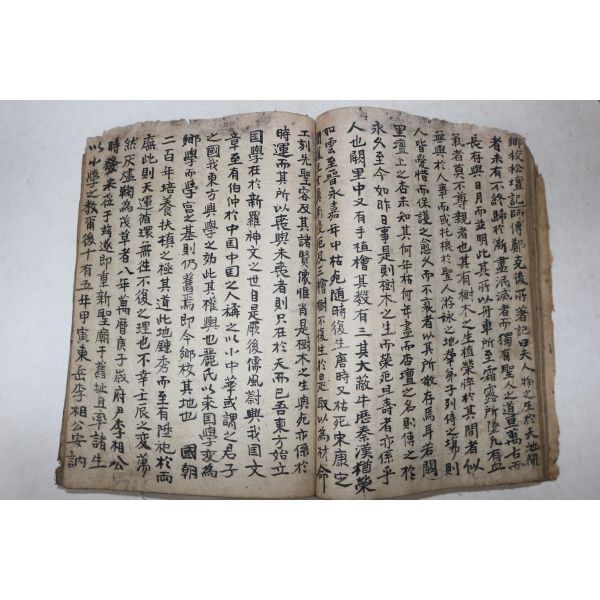 鄉校松壇記師傅鄭克後所著記曰夫人物之生於天地間
者未有不終歸於漸盡泯滅者而獨有聖人之道亘萬古而
長存與日月而並明此其所以舟車所至霜露所墜凡有血
氣者莫不尊親者也其有樹木之生植榮悴於其間者似
無與於人事而或托根於聖人游詠之地芾弟子列侍之場則
人皆愛惜而保護之愈久而不衰者以其所敬存焉耳若闕
里壇上之杏未知其何年枯何年盡而杏壇之名則傳之於
永久至今如昨日事是則樹木之生而榮死且壽者亦係乎
人也闕里中又有手植檜其数有三其大蔽牛歷秦漢猶榮
如云至晉永嘉年中枯死隨時復生唐時又枯死宋康定
三檜樹不復生於是取以為材命
工刻先聖容及其諸賢像惟肖是樹木之生與死亦係於
時運而其所以喪與未喪者則只在於天而已吾東方始立
国學在於新羅神文之世自是厥後儒風蔚興我国文
章至有伯仲於中国中国之人稱之以小中華或謂之君子
之國我東方興學之効此其權輿也麗氏以来国學变為
鄉學而學宫之基則仍舊焉即今鄉校其地也 國朝
二百年培養扶植之極其道此地鍾秀而至有陞祀於兩
廡此則天運循環無徃不復之理也不幸壬辰之变蕩
然灰虛鞠為茂草者八年萬曆庚子歲府尹李相公
時發来莅于玆遂即重新聖廟于舊址且率諸生
以小學之教爾後十有五年甲寅東岳李相公安訥